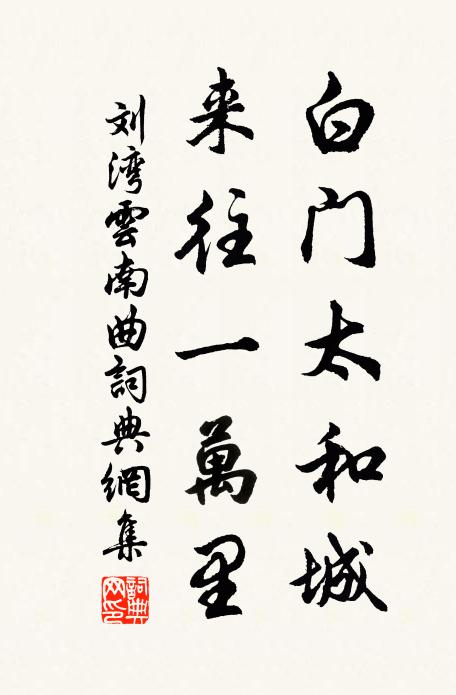 白门太和城
来往一萬里
刘湾雲南曲詞典網集
詞典網印